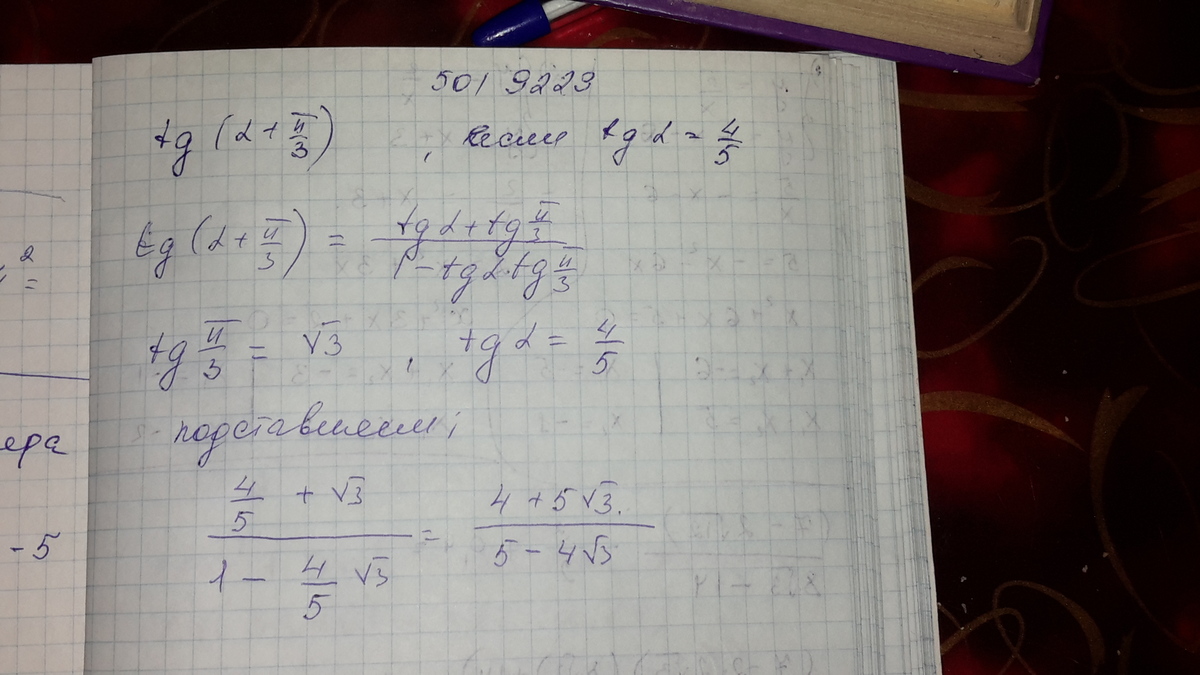 5019229
tg (α + π/3) , если tg α = 4/5
tg (α + π/3) = (tg α + tg π/3) / (1 - tg α · tg π/3)
2
=
tg π/3 = √3 , tg α = 4/5
ера
подставляем;
(4/5 + √3) / (1 - 4/5 √3) = (4 + 5√3.) / (5 - 4√3)
-5